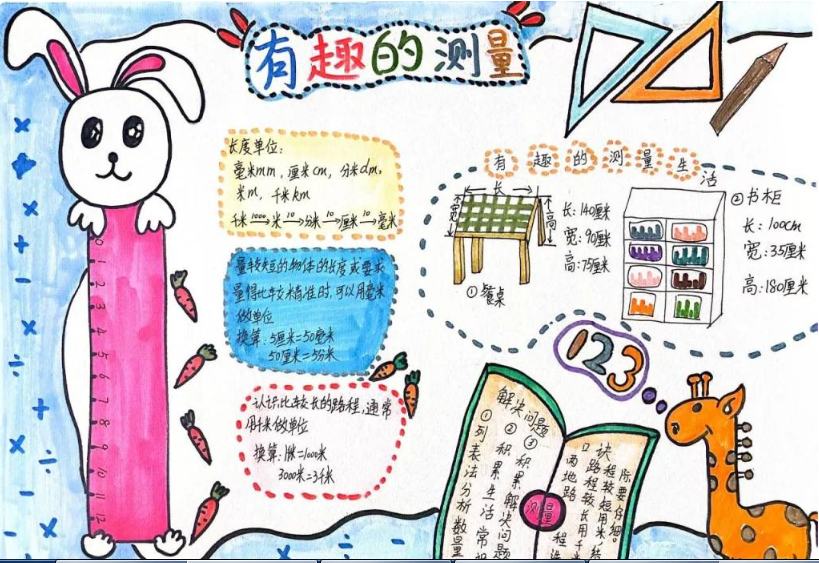 有趣的测量
长度单位:
毫米mm,厘米cm,分米dm,
米m,千米km
千米 1000→ 米 10→ 分米 10→ 厘米 10→ 毫米
量较短的物体的长度或要求
量得比较精准时,可以用毫米
做单位
换算:5厘米=50厘米
50厘米=5分米
认识比较长的路程,通常
用千米做单位
换算:1米=1000米
3000米=3千米
有趣的测量生活
长
宽
高
①餐桌
长:140厘米
宽:90厘米
高:75厘米
②书柜
长:100cm
宽:35厘米
高:180厘米
123
解决问题
①列表法分析数量
②积累生活常识
③积累解决问题
测量
两地路程
路程较长用千
诀程较短用米,
际要仔细。
0
1
2
3
4
5
6
7
8
9
10
11
12